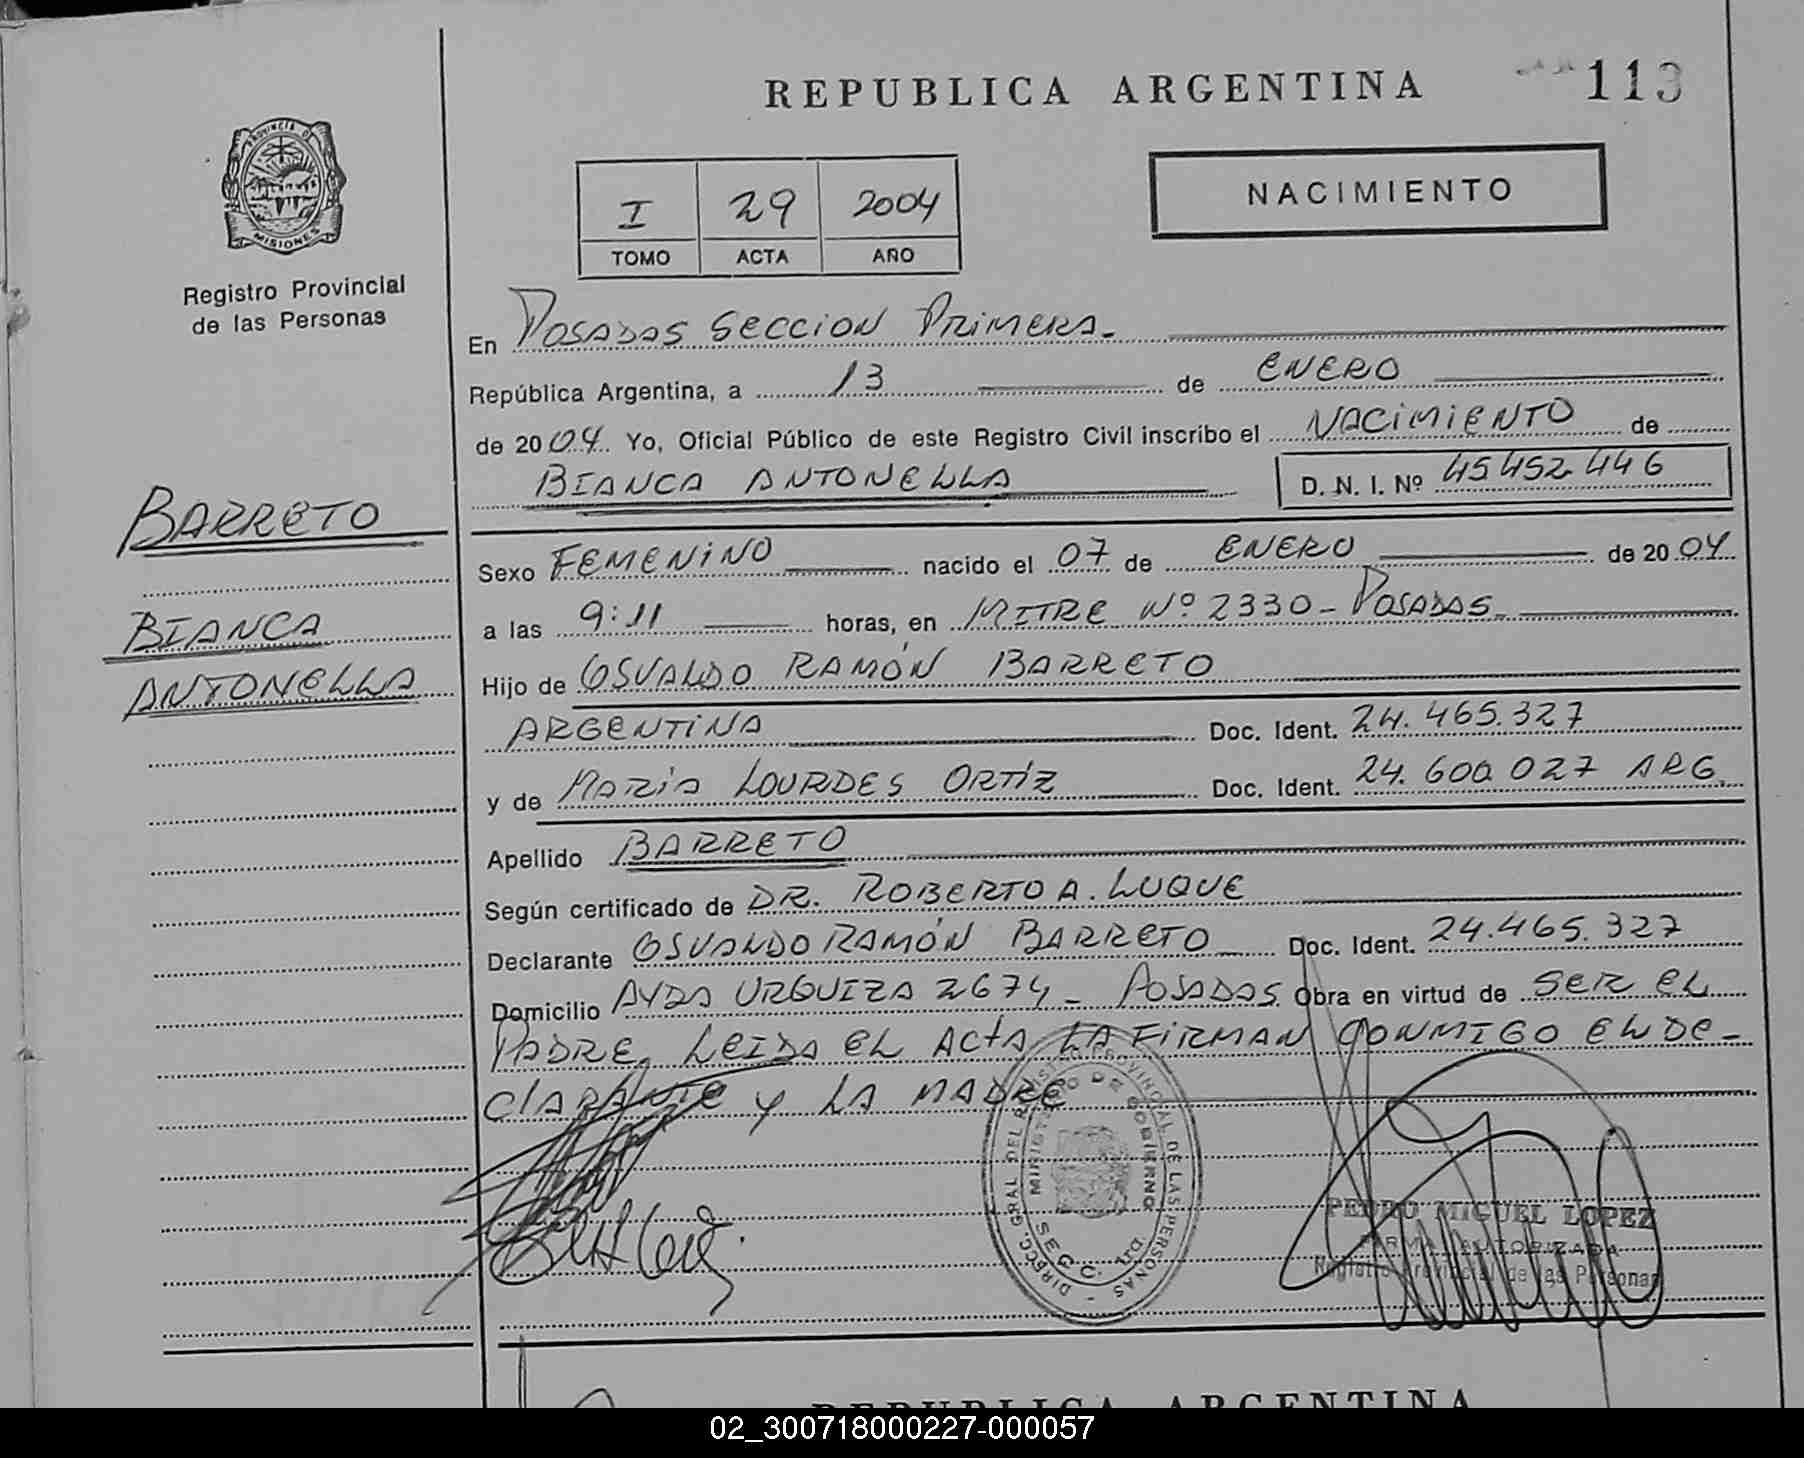 REPUBLICA ARGENTINA
113
PROVINCIA DE
MISIONES
Registro Provincial
de las Personas
I 29 2004
TOMO ACTA AÑO
NACIMIENTO
En POSADAS SECCION PRIMERA.
República Argentina, a 13 de ENERO
de 2004. Yo, Oficial Público de este Registro Civil inscribo el NACIMIENTO de
BIANCA ANTONELLA D. N. I. Nº 45452446
BARRETO
BIANCA
ANTONELLA
Sexo FEMENINO nacido el 07 de ENERO de 2004
a las 9:11 horas, en MITRE Nº 2330 - POSADAS.
Hijo de OSVALDO RAMÓN BARRETO
ARGENTINA Doc. Ident. 24.465.327
y de MARÍA LOURDES ORTÍZ Doc. Ident. 24.600.027 ARG.
Apellido BARRETO
Según certificado de DR. ROBERTO A. LUQUE
Declarante OSVALDO RAMÓN BARRETO Doc. Ident. 24.465.327
Domicilio AVDA URQUIZA 2674 - POSADAS Obra en virtud de SER EL
PADRE, LEIDA EL ACTA LA FIRMAN CONMIGO EL DE-
CLARANTE Y LA MADRE
DIRECC. GRAL DEL REGISTRO PROVINCIAL DE LAS PERSONAS
MINISTERIO DE GOBIERNO
SECC. 1RA
PEDRO MIGUEL LOPEZ
FIRMA AUTORIZADA
Registro Provincial de las Personas
REPUBLICA ARGENTINA
02_300718000227-000057